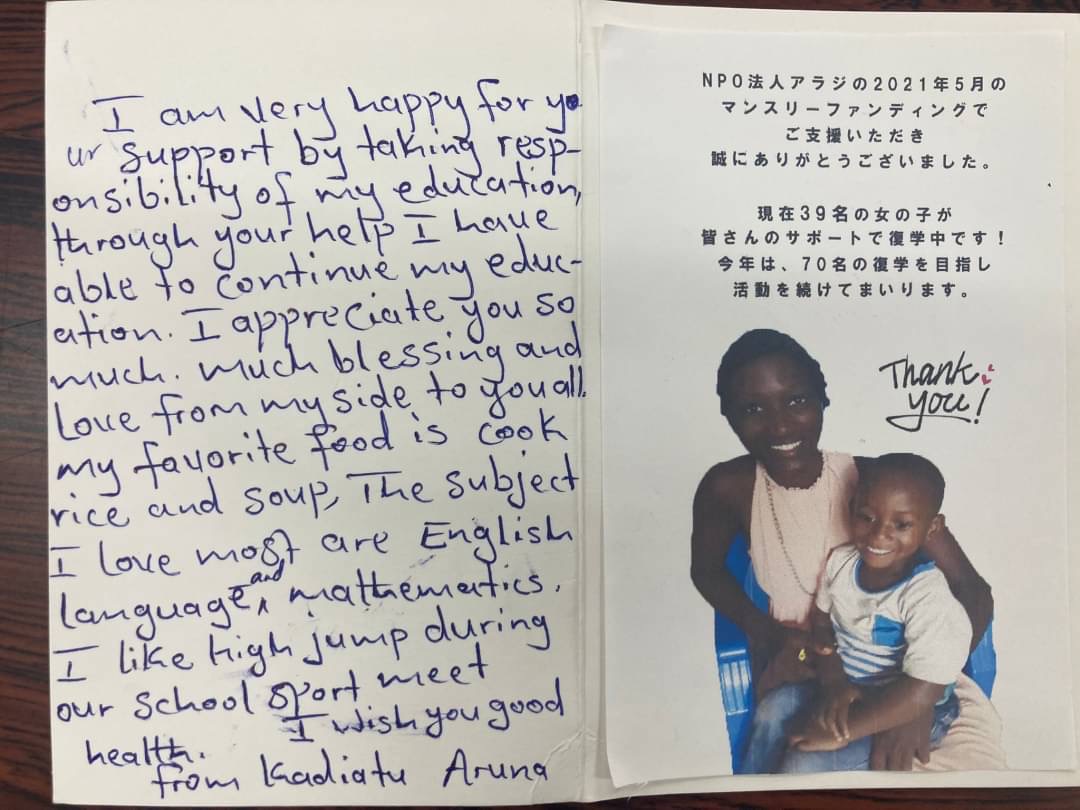 I am very happy for yo
ur support by taking resp-
onsibility of my education,
through your help I have
able to continue my educ-
ation. I appreciate you so
much. much blessing and
Love from my side to you all.
my favorite food is cook
rice and soup, The subject
I love most are English
language and mathematics.
I like high jump during
our school sport meet
I wish you good
health.
from Kadiatu Aruna
NPO法人アラジの2021年5月の
マンスリーファンディングで
ご支援いただき
誠にありがとうございました。
現在39名の女の子が
皆さんのサポートで復学中です！
今年は、70名の復学を目指し
活動を続けてまいります。
Thank
you!